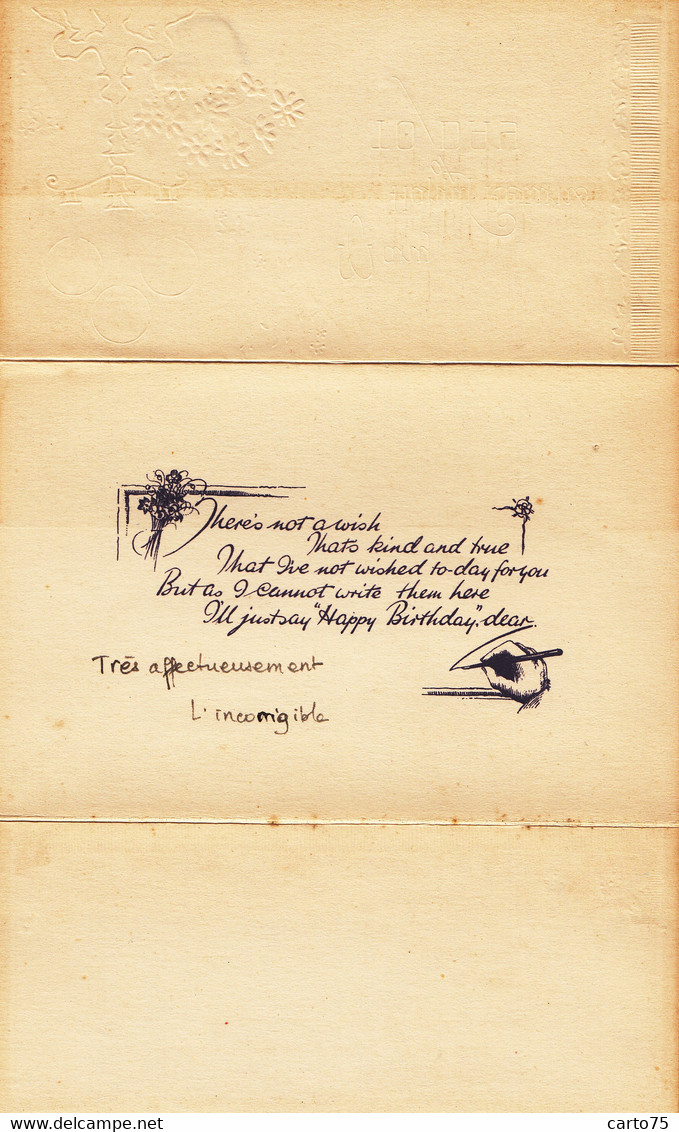 There's not a wish
Thats kind and true
That I've not wished to-day for you
But as I cannot write them here
I'll just say "Happy Birthday", dear.
Très affectueusement
L'incorrigible
delcampe.net
carto75